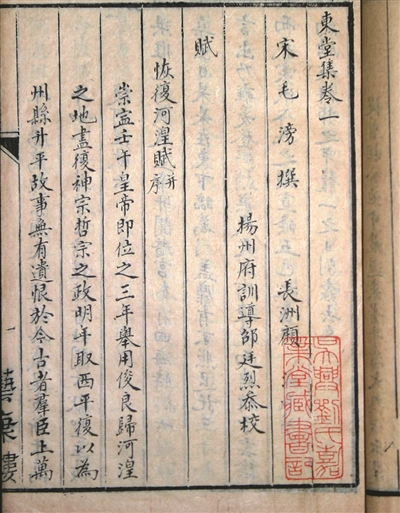 東堂集卷上
宋毛滂撰 長洲顧
揚州府訓導邵廷烈恭校
賦
恢復河湟賦并序
崇寍壬午皇帝即位之三年舉用俊良歸河湟
之地盡復神宗哲宗之政明年取西平復以為
州縣升平故事無有遺恨於今古者羣臣上萬
一
藝海樓
吳興劉氏嘉
業堂藏書記